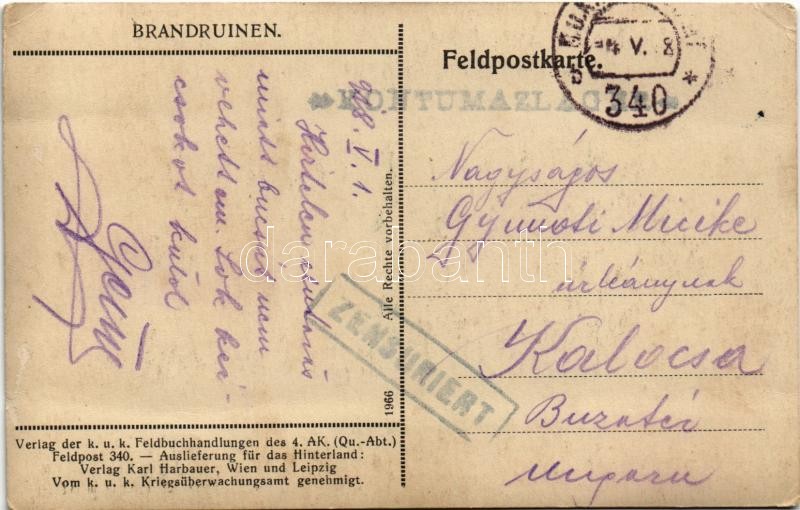 BRANDRUINEN.
Feldpostkarte.
-4 V. 8
340
KONTUMAZLAG
918. V. 1.
Hirtelen
mint bucsut nem
vehettem. Sok kéz-
csókot küld
ZENSURIERT
Nagyságos
Gyimóti Micike
urleánynak
Kalocsa
Ungarn
1966 Alle Rechte vorbehalten.
Verlag der k. u. k. Feldbuchhandlungen des 4. AK. (Qu.-Abt.)
Feldpost 340. — Auslieferung für das Hinterland:
Verlag Karl Harbauer, Wien und Leipzig
Vom k. u. k. Kriegsüberwachungsamt genehmigt.
darabanth